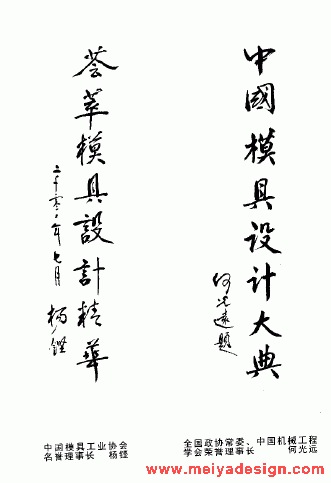 中國模具设计大典
何光遠題
全国政协常委、中国机械工程
学会荣誉理事长 何光远
荟萃模具設計精華
二千零二年七月
杨铿
中国模具工业协会
名誉理事长 杨铿
www.meiyadesign.com